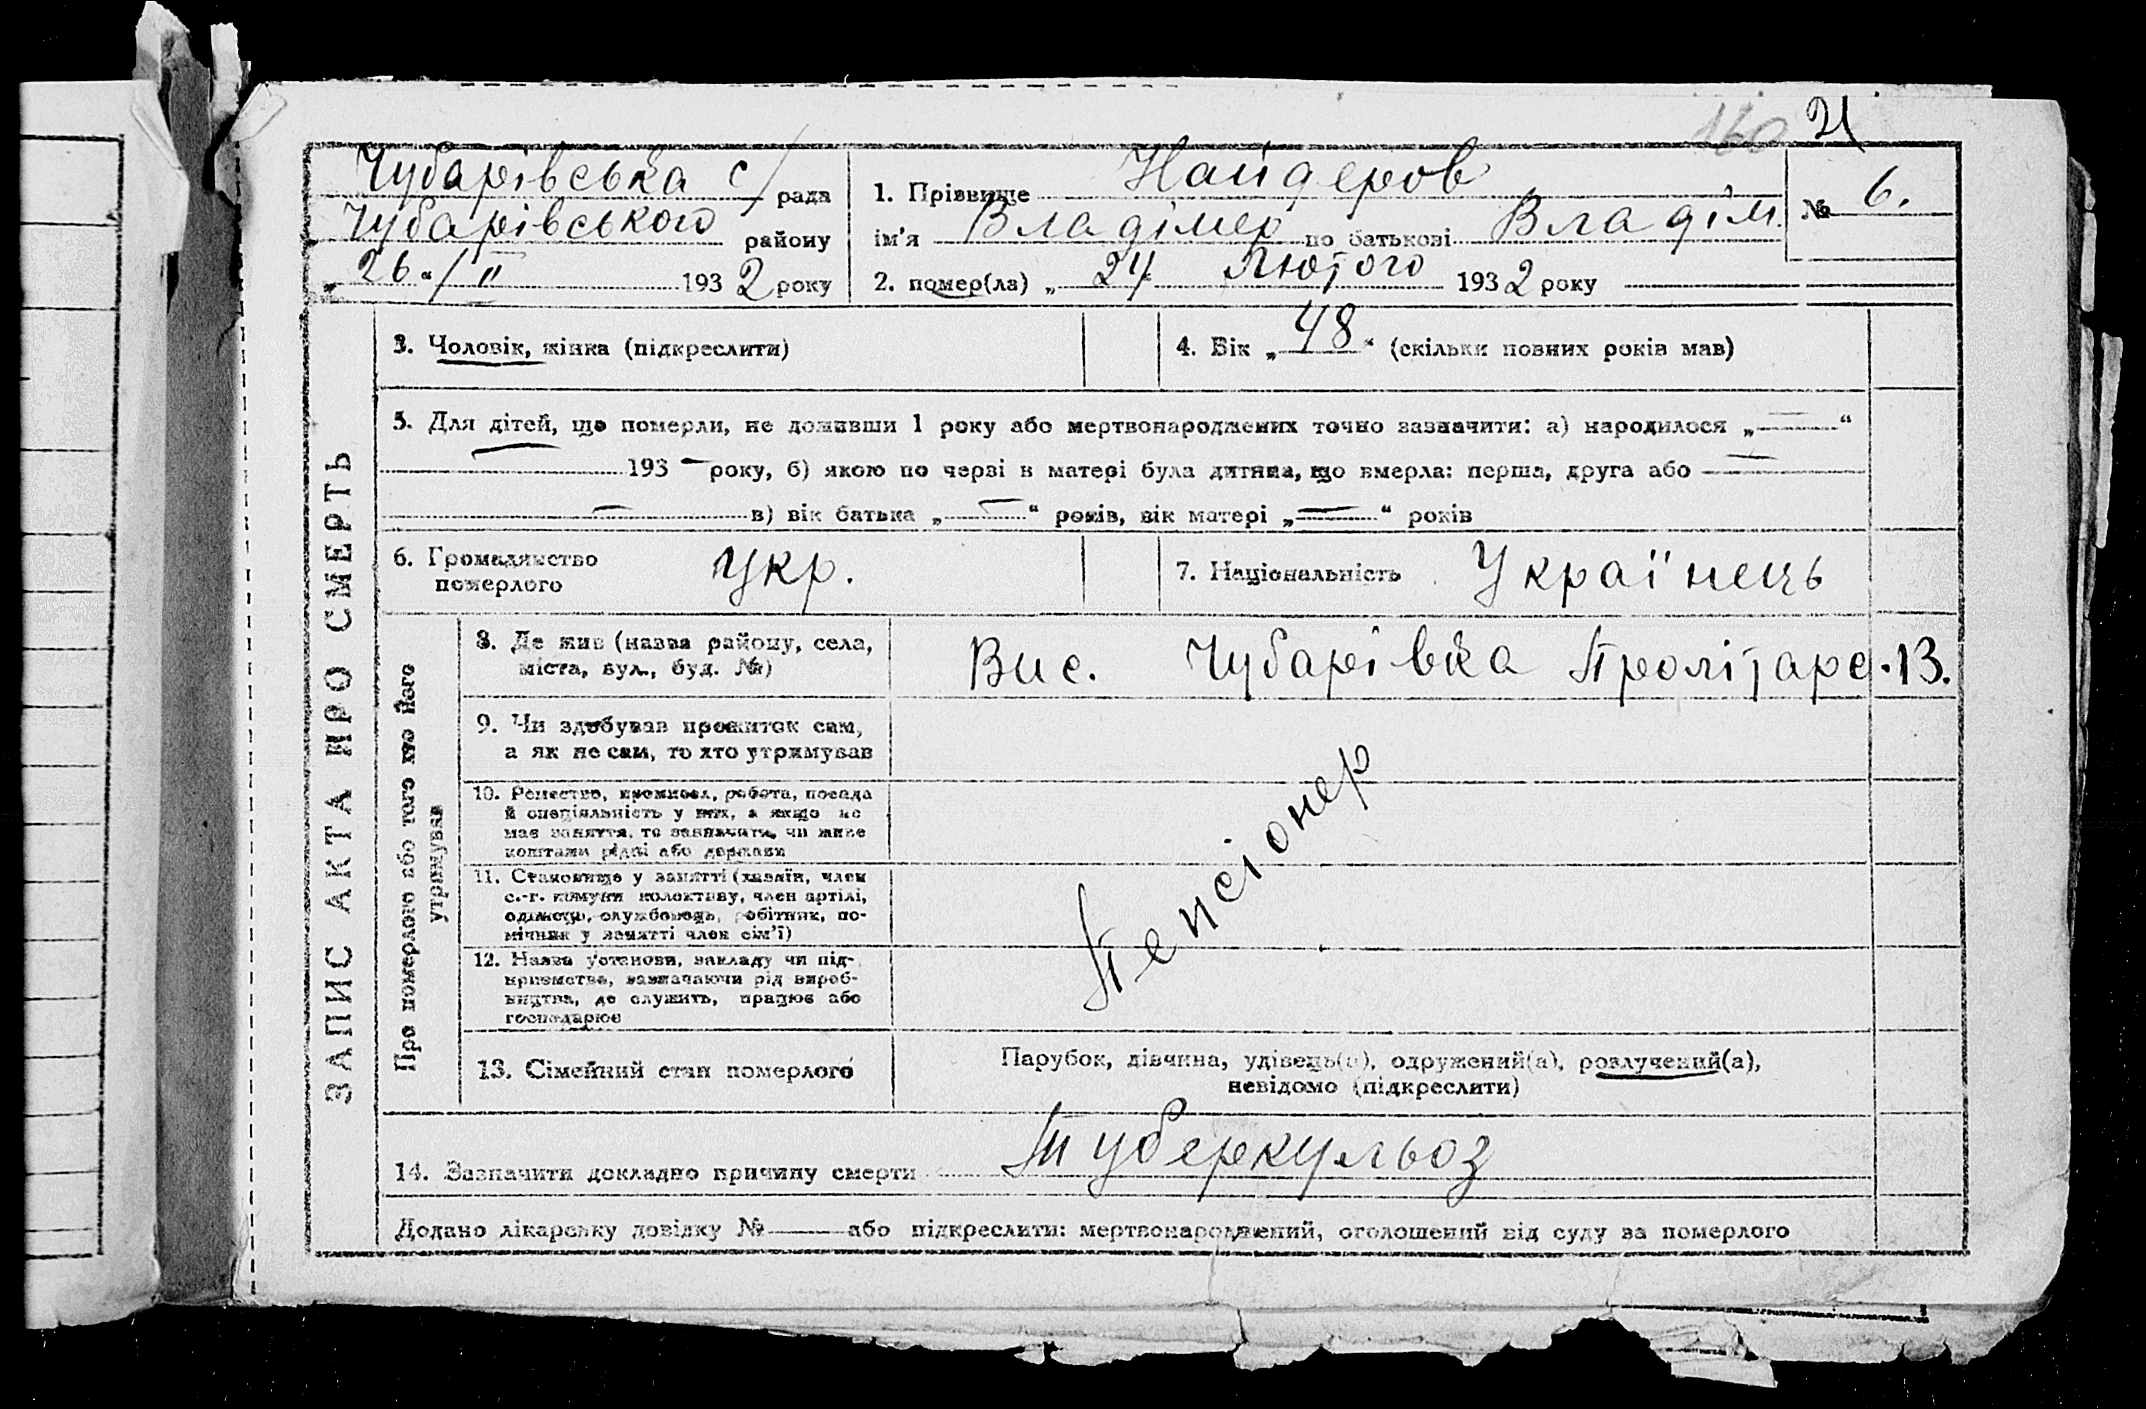 160 21
Чубарівська с/рада
Чубарівського району
„26“/II 1932 року
1. Прізвище Найдеров
ім’я Владімер по батькові Владім.
2. помер(ла) „24 Лютого 1932 року
№ 6.
ЗАПИС АКТА ПРО СМЕРТЬ
3. Чоловік, жінка (підкреслити)
4. Вік „48“ (скільки повних років мав)
5. Для дітей, що померли, не доживши 1 року або мертвонароджених точно зазначити: а) народилося „—“
193 — року, б) якою по черзі в матері була дитина, що вмерла: перша, друга або —
— в) вік батька „—“ років, вік матері „—“ років
6. Громадянство
померлого
Укр.
7. Національність Українець
Про померлого або того хто його
утримував
8. Де жив (назва району, села,
міста, вул., буд. №)
Вис. Чубарівка Пролітарс. 13.
9. Чи здобував прожиток сам,
а як не сам, то хто утримував
10. Ремество, промисел, робота, посада
й спеціяльність у них, а якщо не
має заняття, то зазначити, чи живе
коштами рідні або держави
11. Становище у занятті (хазяїн, член
с.-г. комуни колективу, член артілі,
одинець, службовець, робітник, по-
мічник у занятті член сім’ї)
12. Назва установи, закладу чи під-
приємства, зазначаючи рід вироб-
ництва, де служить, працює або
господарює
Пенсіонер
13. Сімейний стан померлого
Парубок, дівчина, удівець(а), одружений(а), розлучений(а),
невідомо (підкреслити)
14. Зазначити докладно причину смерти Туберкульоз
Додано лікарську довідку № — або підкреслити: мертвонароджений, оголошений від суду за померлого